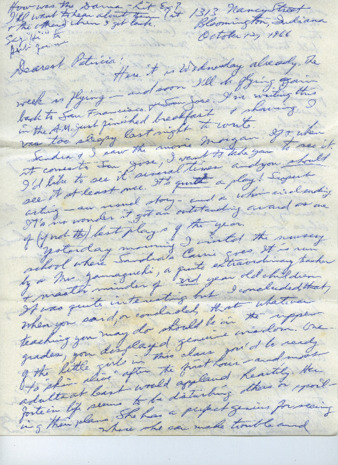 How was the dance - Lit Ex?
I'll want to hear about
& the others when I get back.
1313 Nancy Street
Bloomington, Indiana
October 26, 1966
Dearest Patricia:
Here it is Wednesday already. The
week is flying - and soon I'll be flying again
back to San Francisco & San Jose. I'm writing this
in the A.M. just finished breakfast
was too sleepy last night to write.
Sandra & I saw the movie Morgan. If & when
it comes to San Jose, I want to take you to see it.
I'd like to see it several times and you should
see it at least once. It's quite a play. Superb
acting - an unusual story - and a ending.
It's no wonder it got an outstanding award as one
of (if not the) best plays of the year.
Yesterday morning I visited the nursery
school where Sandra's Carrie goes. It is run
by a Mrs. Yamaguchi, a quite extraordinary teacher
& master minder of 3rd year old children.
It was quite interesting but I concluded that,
when you said or concluded that whatever
teaching you may do should be in the upper
grades, you displayed genuine wisdom. One
of the little girls in this class you'd be ready
to "skin alive" after the first hour - and most
adults at least would applaud heartily. Her
forte in life seems to be disturbing others or spoil-
ing their plans. She has a perfect genius for seeing
where she can make trouble and